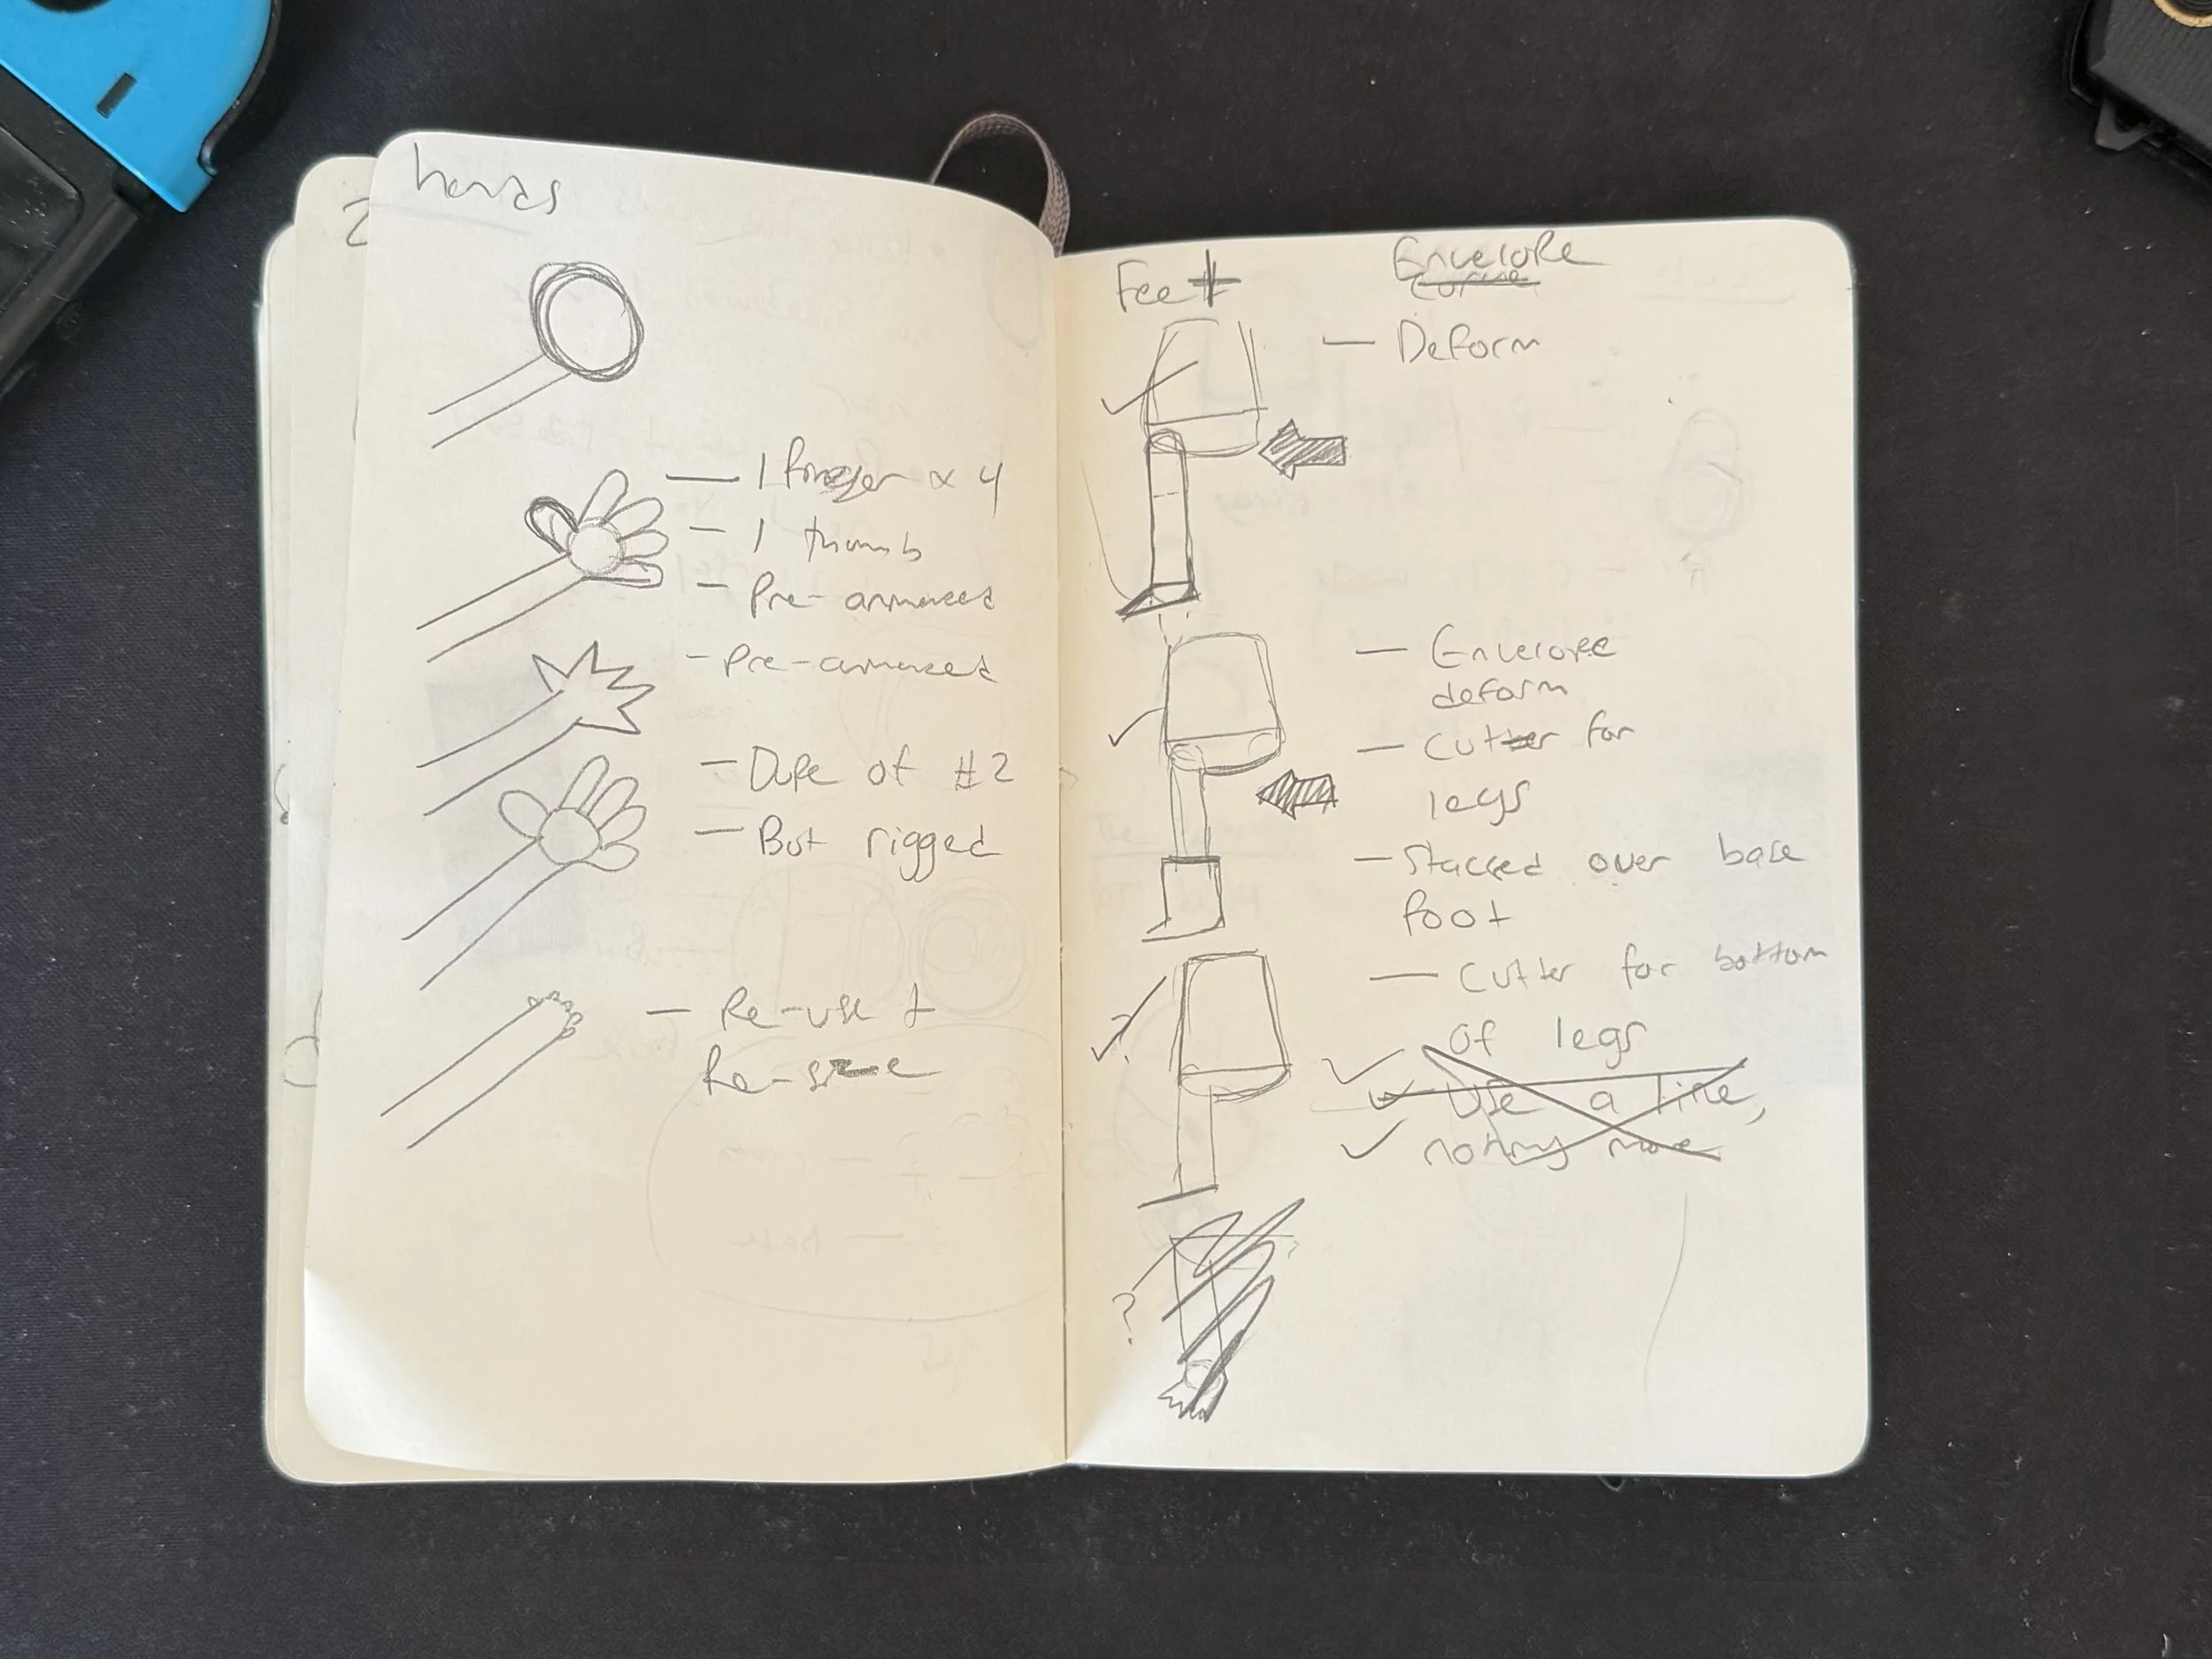 hands
2
— 1 finger x 4
— 1 thumb
— Pre-animated
- Pre-animated
— Dupe of #2
— But rigged
— Re-use +
Re-size
Feet
Envelope
— Deform
— Envelope
deform
— Cutter for
legs
— Stacked over base
foot
— Cutter for bottom
of legs
Use a line,
nothing more
?
?